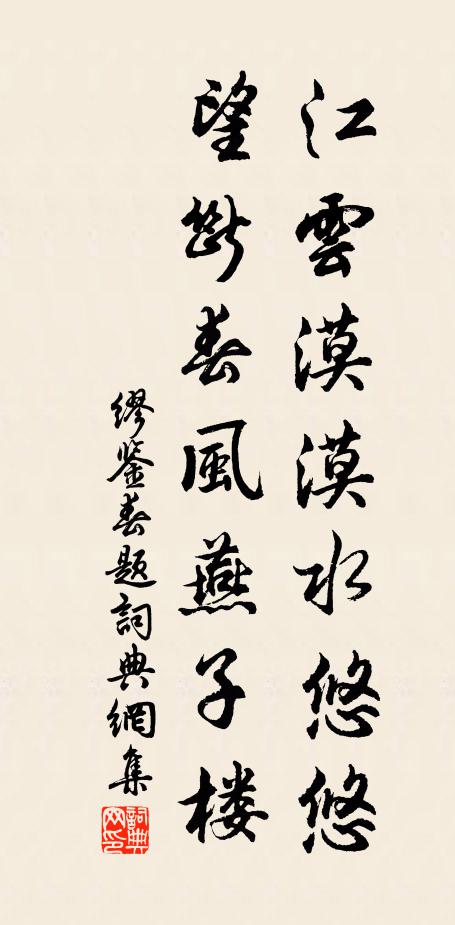 江雲漠漠水悠悠
望斷春風燕子楼
缪鉴春题詞典網集
詞典
网印